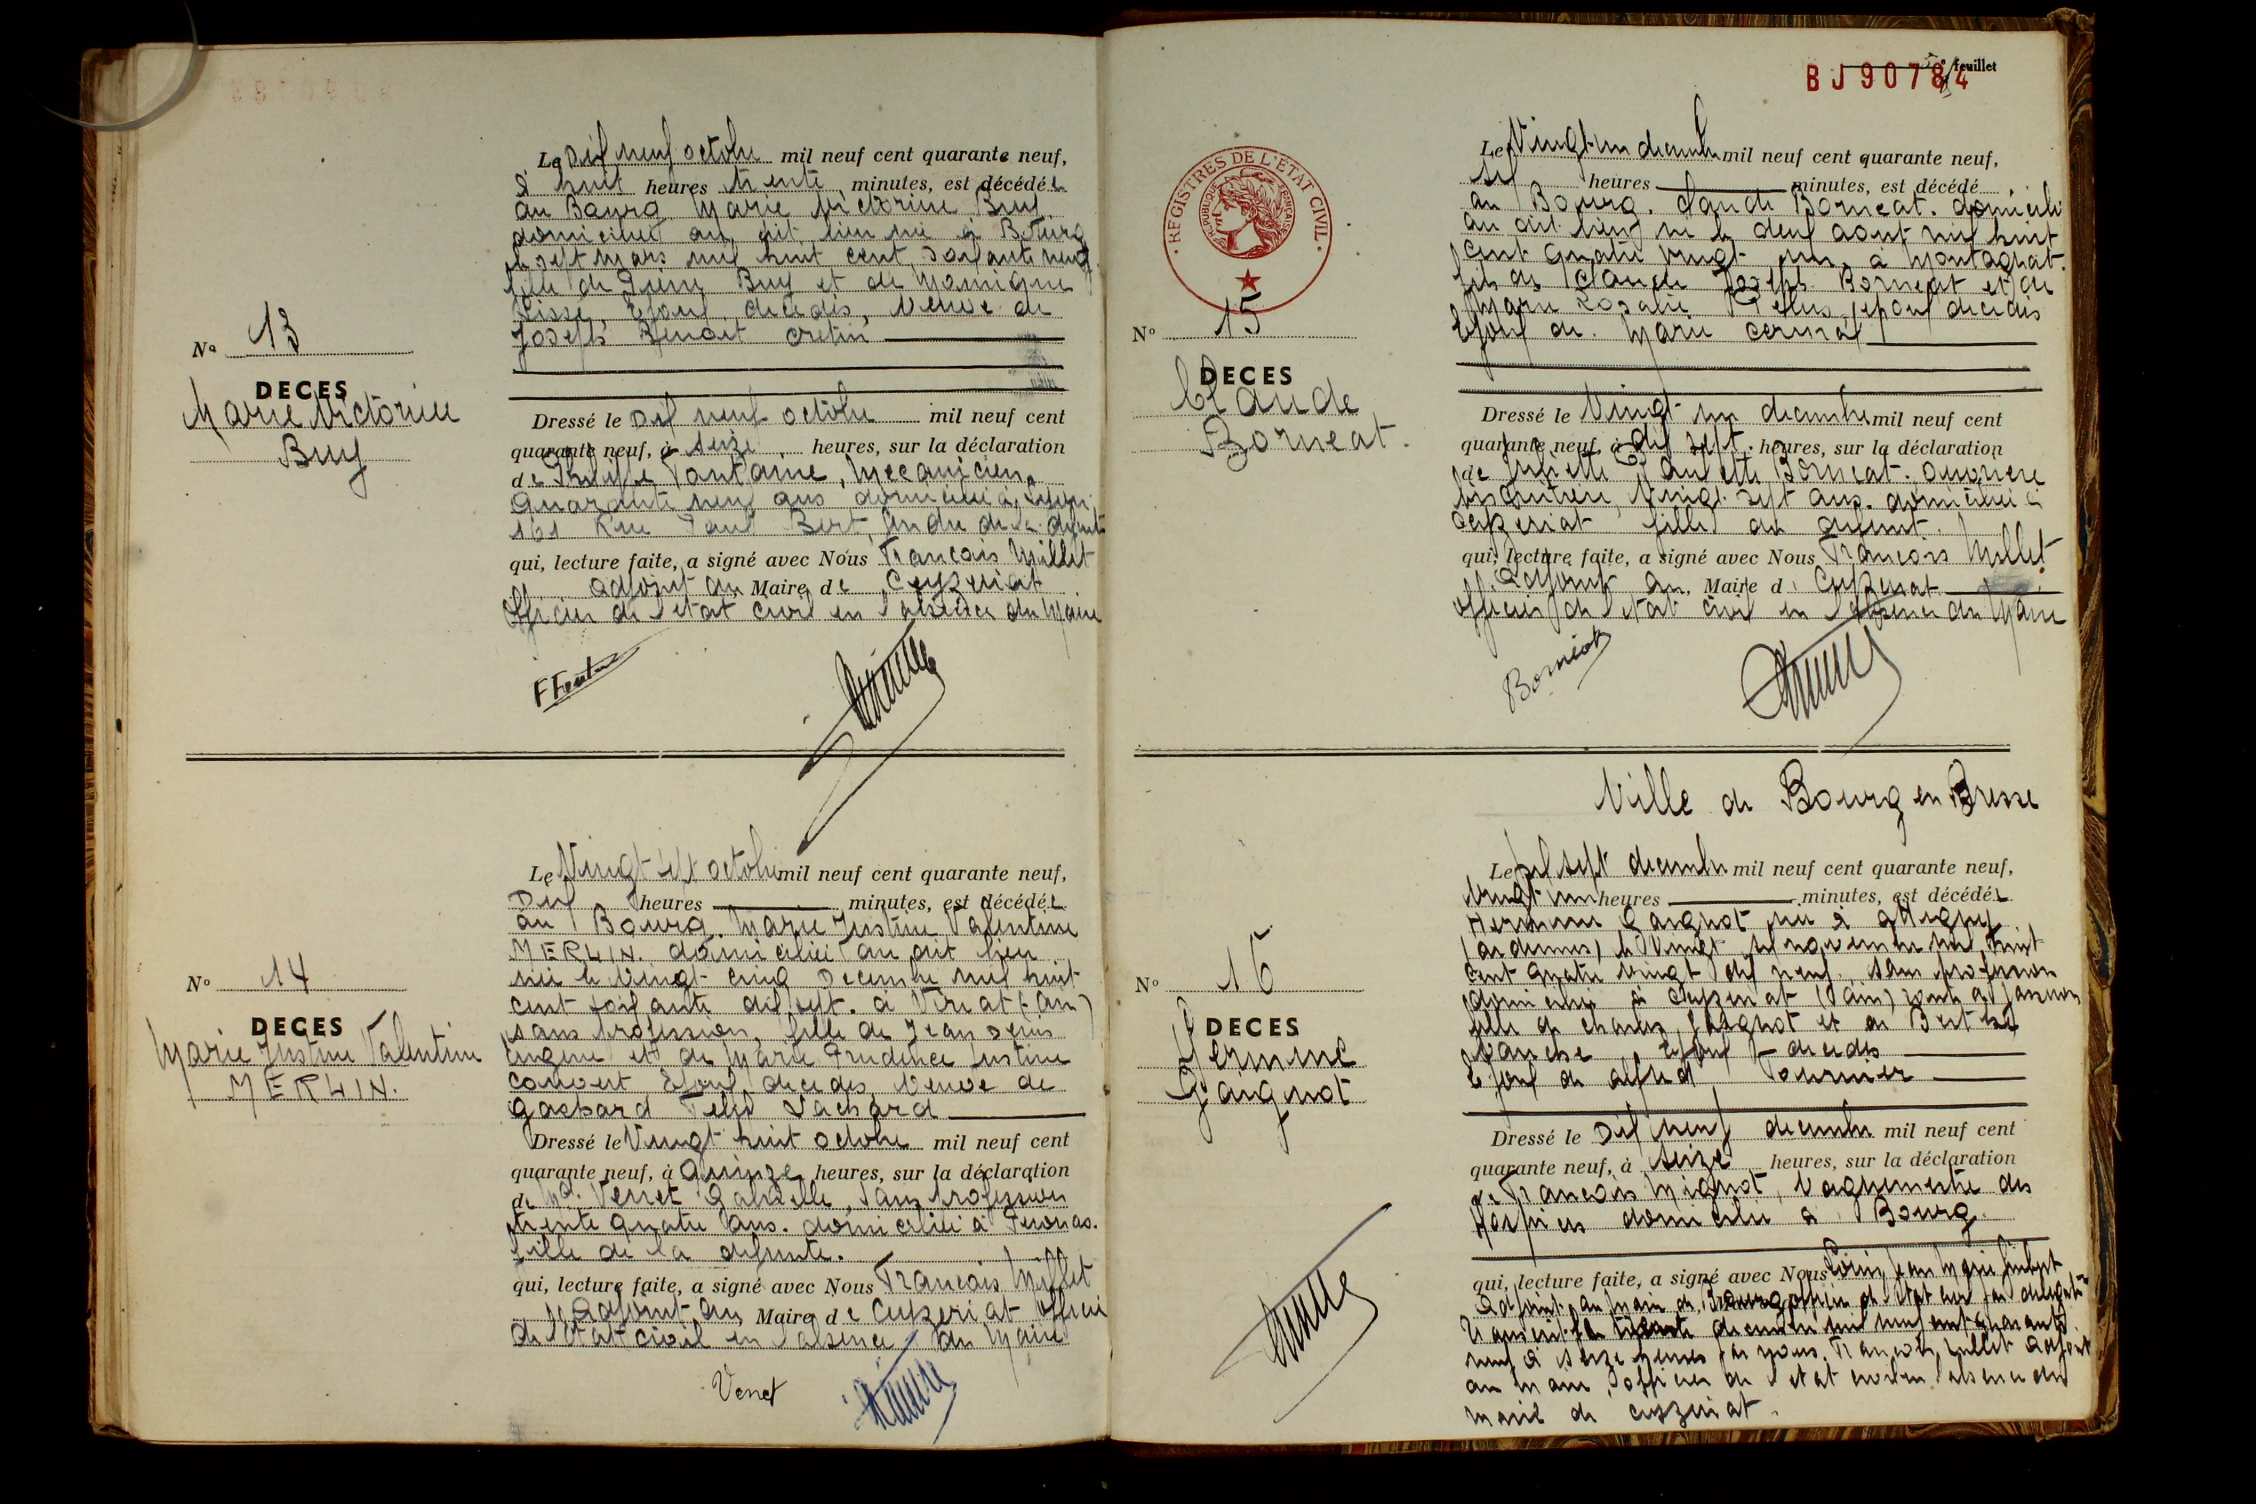 Nº 13
DECES
Marie Victorine
Buy
Le Dix neuf octobre mil neuf cent quarante neuf,
à huit heures trente minutes, est décédée
au Bourg Marie Victorine Buy
domiciliée au dit lieu née à
le sept mars mil huit cent soixante neuf
fille de Buy et de
décédés, Veuve de
Joseph Benoit Cretin
Dressé le Dix neuf octobre mil neuf cent
quarante neuf, à seize heures, sur la déclaration
de Philippe Fontaine, Mécanicien
Quarante neuf ans domicilié à Lyon
161 Rue Paul Bert, Gendre de la défunte
qui, lecture faite, a signé avec Nous Francois Millet
adjoint au Maire de Ceyzeriat
officier de l'état civil en l'absence du Maire
Nº 14
DECES
Marie Justine Valentine
MERLIN.
Le Vingt sept octobre mil neuf cent quarante neuf,
Dix heures minutes, est décédée
au Bourg. Marie Justine Valentine
MERLIN. domiciliée au dit lieu
née le Vingt cinq Decembre mil huit
cent soixante dix sept. à Viriat (Ain)
sans profession, fille de Jean
Eugene et de Marie Prudence Justine
Convert Epoux décédés, Veuve de
Gaspard Felix Pachard
Dressé le Vingt huit octobre mil neuf cent
quarante neuf, à Quinze heures, sur la déclaration
de Venet Gabrielle, sans profession
trente quatre ans. domiciliée à Peronas.
fille de la defunte.
qui, lecture faite, a signé avec Nous Francois Millet
Adjoint au Maire de Ceyzeriat officier
de l'état civil en l'absence du Maire
Venet
BJ90784
feuillet
REGISTRES DE L'ETAT CIVIL
REPUBLIQUE FRANÇAISE
Nº 15
DECES
Claude
Borneat.
Le Vingt-un decembre mil neuf cent quarante neuf,
heures minutes, est décédé
au Bourg. Claude Borneat. domicilié
au dit lieu né le deux aout mil huit
cent quatre vingt un à Montagnat.
fils de Claude Joseph Borneat et de
Marie Rosalie epoux decedés
Epoux de Marie
Dressé le Vingt un decembre mil neuf cent
quarante neuf, à dix sept heures, sur la déclaration
de Juliette Paulette Borneat. ouvrière
Vingt sept ans. domiciliée à
Ceyzeriat fille du defunt.
qui, lecture faite, a signé avec Nous Francois Millet
Adjoint au Maire de Ceyzeriat
officier de l'état civil en l'absence du Maire
Borneat
Ville de Bourg en Bresse
Nº 16
DECES
Hermine
Gaignot
Le Dix sept decembre mil neuf cent quarante neuf,
Vingt-un heures minutes, est décédée
Hermine Gaignot née à Attigny
(Ardennes) le Vingt novembre mil huit
cent quatre vingt dix neuf, sans profession
domiciliée à Ceyzeriat (Ain) route de Jasseron
fille de Charles Gaignot et de Berthe
Epoux decedés
Epouse de Alfred Fournier
Dressé le Dix neuf decembre mil neuf cent
quarante neuf, à seize heures, sur la déclaration
de Francois Mignot, Vaguemestre des
Hospices domicilié à Bourg.
qui, lecture faite, a signé avec Nous Jean Marie
Adjoint au Maire de Bourg officier de l'état civil par délégation
Transcrit le trente decembre mil neuf cent quarante
neuf à seize heures par nous, Francois Millet Adjoint
au Maire, officier de l'état civil en l'absence du
Maire de Ceyzeriat.